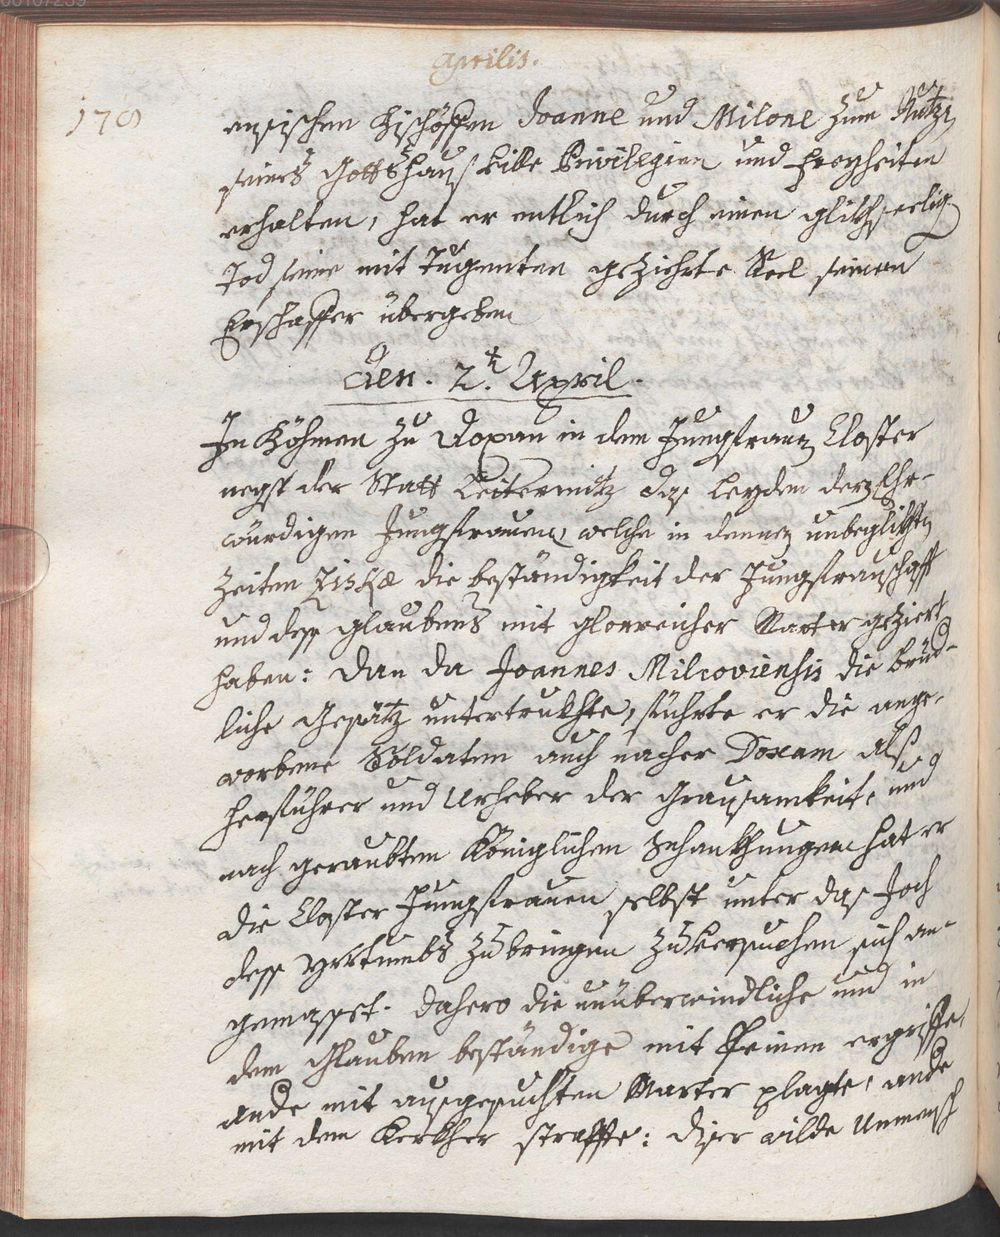 Aprilis.
178
ensischen Bischöffen Joanne und Milone zum Nutzen
seines Gottshauß Privilegien und Freyheiten
erhalten, hat er entlich durch einen glükhseelig
Tod seine mit Tugenten geziehrte Seel seinen
Erschaffer übergeben
den. 2.t April.
In Böhmen zu Doxan in dem Jungfrauen Closter
negst der Statt Leitermitz das Leyden derz Ehr-
würdigen Jungfrauen, welche in denen unbeglikhten
Zeiten Ziskæ die beständigkeit der Jungfrauschafft
und dess glaubens mit glorreicher Marter geziert
haben: dan da Joannes Milcoviensis die brüd-
liche Gesätz untertrukhte, führte er die ange-
worbene Soldaten auch nacher Doxam alß
herführer und Urheber der grausamkeit, und
nach geraubten Königlichen Schankhungen hat er
die Closter Jungfrauen selbst unter das Joch
dess Yrrtumbs zubringen zuversuchen sich an-
gemasset. dahero die unüberwindliche und in
dem Glauben beständige mit Peinen ergriffe,
ande mit ausgesuchten Marter plagte, ande
mit dem Kerkher straffte: diser wilde Unmensch